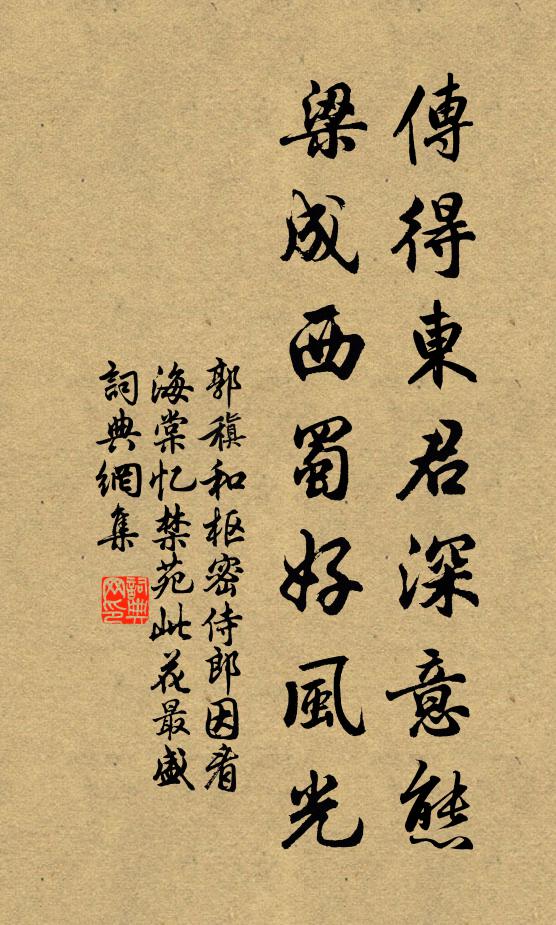 傳得東君深意態
梁成西蜀好風光
郭稹和枢密侍郎因看
海棠忆禁苑此花最盛
詞典網集
詞典
网印